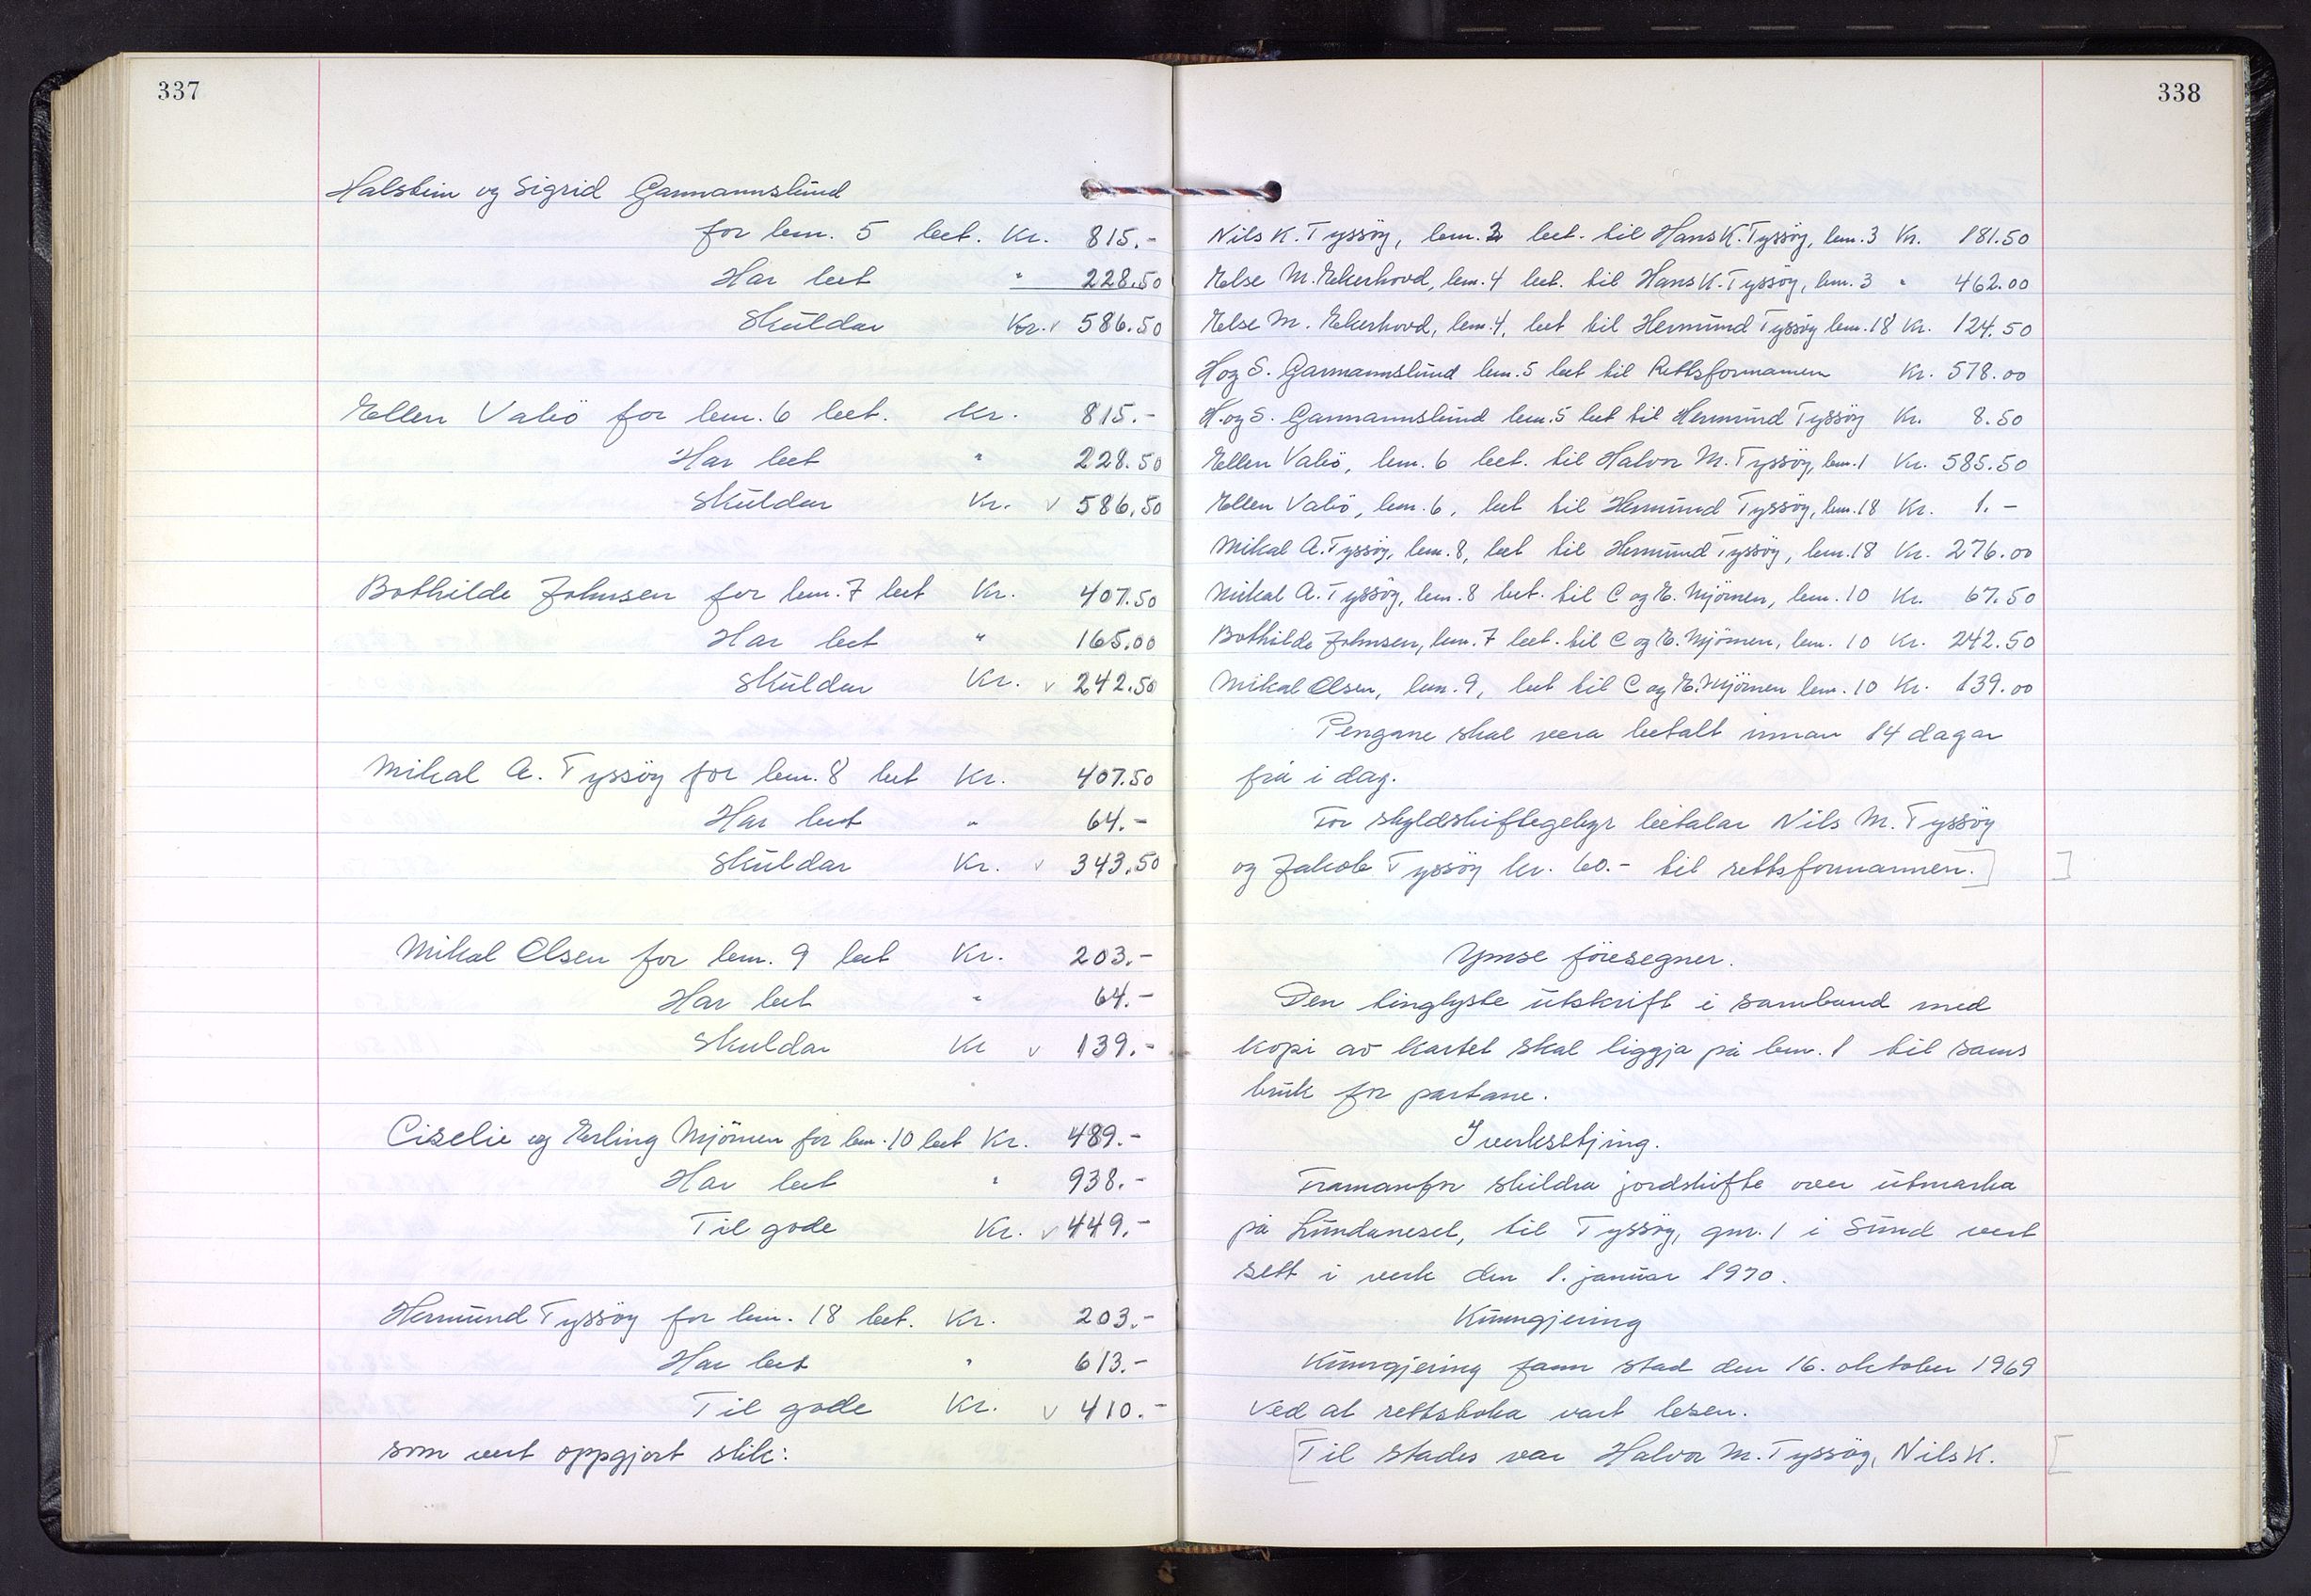 337
Halstein og Sigrid Garmannslund
for lem. 5 bet. Kr. 815.-
Har bet " 228.50
Skuldar Kr. v 586.50
Ellen Valö for lem. 6 bet. Kr. 815.-
Har bet " 228.50
Skuldar Kr. v 586.50
Bothilde Johnsen for lem. 7 bet Kr. 407.50
Har bet " 165.00
Skuldar Kr. v 242.50
Mikal A. Tyssöy for lem. 8 bet Kr. 407.50
Har bet " 64.-
Skuldar Kr. v 343.50
Mikal Olsen for lem. 9 bet Kr. 203.-
Har bet " 64.-
Skuldar Kr v 139.-
Ciselie og Erling Mjömen for lem. 10 bet Kr. 489.-
Har bet " 938.-
Til gode Kr. v 449.-
Hermund Tyssöy for lem. 18 bet. Kr. 203.-
Har bet " 613.-
Til gode Kr. v 410.-
som vert oppgjort slik:
338
Nils K. Tyssöy, lem. 2 bet. til Hans K. Tyssöy, lem. 3 Kr. 181.50
Else M. Ekerhovd, lem. 4 bet. til Hans K. Tyssöy, lem. 3 " 462.00
Else M. Ekerhovd, lem. 4, bet til Hermund Tyssöy lem. 18 Kr. 124.50
H og S. Garmannslund lem. 5 bet til Rettsformannen Kr. 578.00
H. og S. Garmannslund lem. 5 bet til Hermund Tyssöy Kr. 8.50
Ellen Valö, lem. 6 bet. til Halvor M. Tyssöy, lem. 1 Kr. 585.50
Ellen Valö, lem. 6, bet til Hermund Tyssöy, lem. 18 Kr. 1.-
Mikal A. Tyssöy, lem. 8, bet til Hermund Tyssöy, lem. 18 Kr. 276.00
Mikal A. Tyssöy, lem. 8 bet. til C og E. Mjömen, lem. 10 Kr. 67.50
Bothilde Johnsen, lem. 7 bet. til C og E. Mjömen, lem. 10 Kr. 242.50
Mikal Olsen, lem. 9, bet til C og E. Mjömen lem. 10 Kr. 139.00
Pengane skal vera betalt innan 14 dagar
frå i dag.
For skyldskiftegebyr betalar Nils M. Tyssöy
og Jakob Tyssöy kr. 60.- til rettsformannen.] ]
Ymse föresegner.
Den tinglyste utskrift i samband med
kopi av kartet skal liggja på lem. 1 til sams
bruk for partane.
Iverksetjing.
Framanfor skildra jordskifte over utmarka
på Lundaneset, til Tyssöy, gnr. 1 i Sund vert
sett i verk den 1. januar 1970.
Kunngjering
Kunngjering fann stad den 16. oktober 1969
ved at rettsboka vart lesen.
[Til stades var Halvor M. Tyssöy, Nils K. [